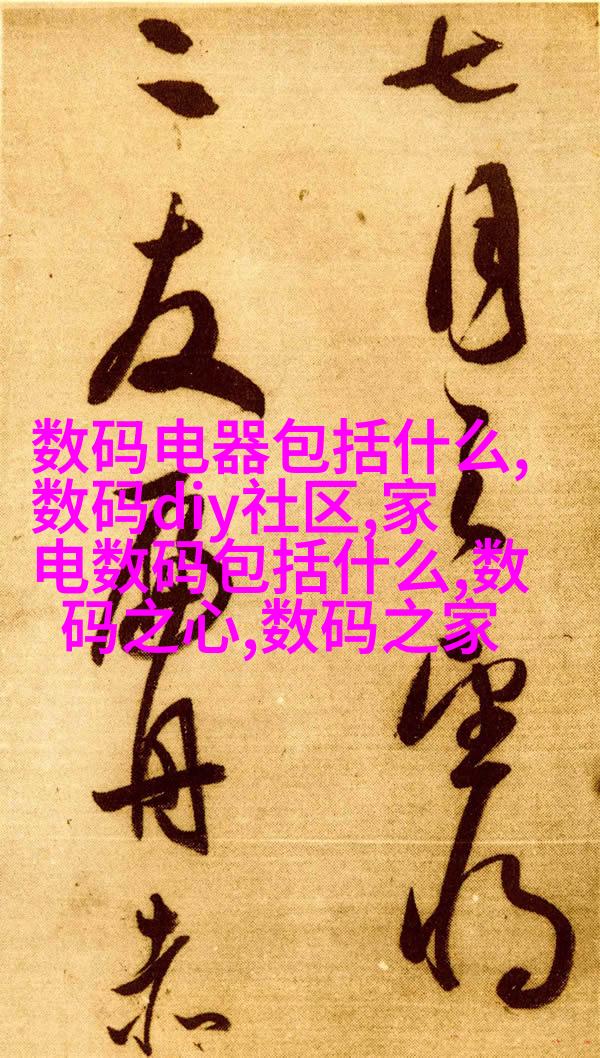 七月之望将
二友舟赤
数码电器包括什么,
数码diy社区,家
电数码包括什么,数
码之心,数码之家